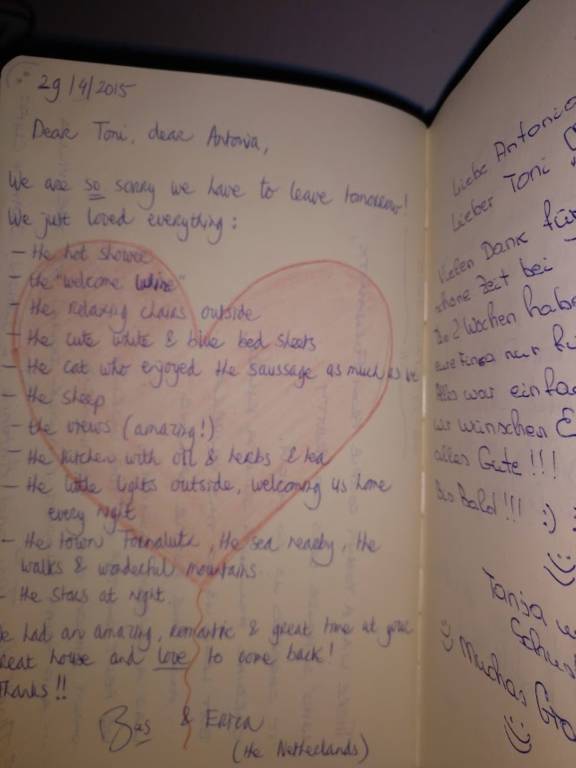 29/4/2015
Dear Toni, dear Antonia,
We are so sorry we have to leave tomorrow!
We just loved everything:
- the hot shower
- the "welcome wine"
- the relaxing chairs outside
- the cute white & blue bed sheets
- the cat who enjoyed the saussage as much as we
- the sheep
- the views (amazing!)
- the kitchen with oil & herbs & tea
- the little lights outside, welcoming us home
every night
- the town Fornalutx, the sea nearby, the
walks & wonderful mountains
- the stars at night
We had an amazing, romantic & great time at your
great house and love to come back!
Thanks!!
Bas &
(the Netherlands)
Liebe Antonia
Lieber Toni
Vielen Dank für
schöne Zeit bei
2 Wochen habe
eure Finca nur
Alles war einfa
wir wünschen E
alles Gute!!!
Bis Bald!!! :)
Tanja
Muchas Gra